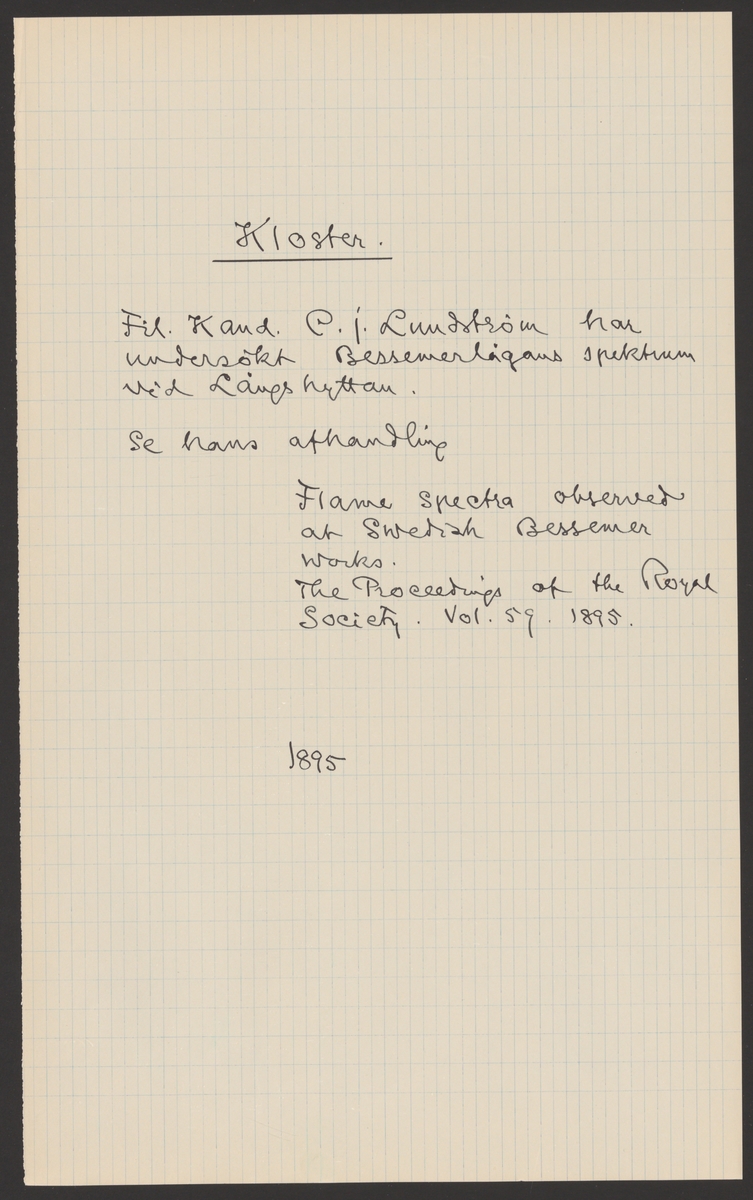 Kloster.
Fil. Kand. C. J. Lundström har
undersökt Bessemerlågans spektrum
vid Långshyttan.
Se hans afhandling
Flame spectra observed
at Swedish Bessemer
Works.
The Proceedings of the Royal
Society. Vol. 59. 1895.
1895